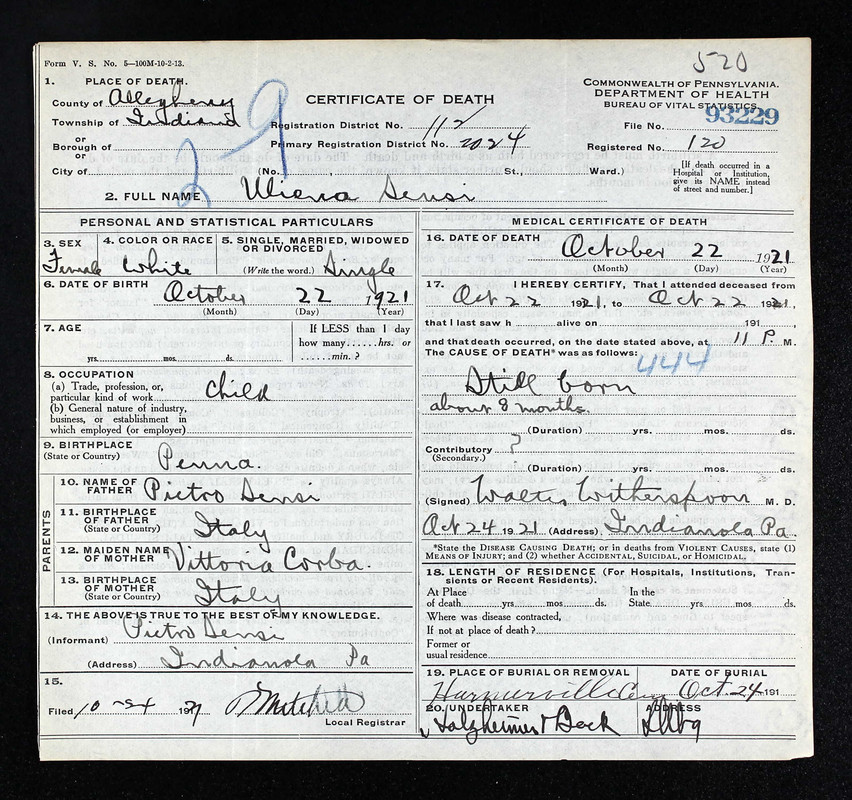 Form V. S. No. 5—100M-10-2-13.
520
1. PLACE OF DEATH.
County of Allegheny
Township of Indiana
or
Borough of
or
City of
29
CERTIFICATE OF DEATH
Registration District No. 112
Primary Registration District No. 2024
(No. , St., Ward.)
COMMONWEALTH OF PENNSYLVANIA.
DEPARTMENT OF HEALTH
BUREAU OF VITAL STATISTICS.
File No. 93229
Registered No. 120
[If death occurred in a Hospital or Institution, give its NAME instead of street and number.]
2. FULL NAME Sensi
PERSONAL AND STATISTICAL PARTICULARS
3. SEX Female
4. COLOR OR RACE White
5. SINGLE, MARRIED, WIDOWED OR DIVORCED
(Write the word.) Single
6. DATE OF BIRTH October 22 1921
(Month) (Day) (Year)
7. AGE
yrs. mos. ds.
If LESS than 1 day
how many......hrs. or
......min. ?
8. OCCUPATION
(a) Trade, profession, or,
particular kind of work Child
(b) General nature of industry,
business, or establishment in
which employed (or employer)
9. BIRTHPLACE
(State or Country) Penna.
PARENTS
10. NAME OF FATHER Pietro Sensi
11. BIRTHPLACE OF FATHER
(State or Country) Italy
12. MAIDEN NAME OF MOTHER Vittoria Corba.
13. BIRTHPLACE OF MOTHER
(State or Country) Italy
14. THE ABOVE IS TRUE TO THE BEST OF MY KNOWLEDGE.
(Informant) Pietro Sensi
(Address) Indianola Pa
15.
Filed 10-24 1921
Local Registrar
MEDICAL CERTIFICATE OF DEATH
16. DATE OF DEATH October 22 1921
(Month) (Day) (Year)
17. I HEREBY CERTIFY, That I attended deceased from
Oct 22 1921, to Oct 22 1921,
that I last saw h alive on 191 ,
and that death occurred, on the date stated above, at 11 P. M.
The CAUSE OF DEATH* was as follows:
444
Still born
about 8 months.
(Duration) yrs. mos. ds.
Contributory
(Secondary.)
(Duration) yrs. mos. ds.
(Signed) Walter Witherspoon M. D.
Oct 24 1921 (Address) Indianola Pa.
*State the DISEASE CAUSING DEATH; or in deaths from VIOLENT CAUSES, state (1)
MEANS OF INJURY; and (2) whether ACCIDENTAL, SUICIDAL, or HOMICIDAL.
18. LENGTH OF RESIDENCE (For Hospitals, Institutions, Tran-
sients or Recent Residents).
At Place In the
of death yrs. mos. ds. State yrs. mos. ds.
Where was disease contracted,
If not at place of death ?
Former or
usual residence
19. PLACE OF BURIAL OR REMOVAL DATE OF BURIAL
Harmerville Cem Oct. 24 191
20. UNDERTAKER ADDRESS